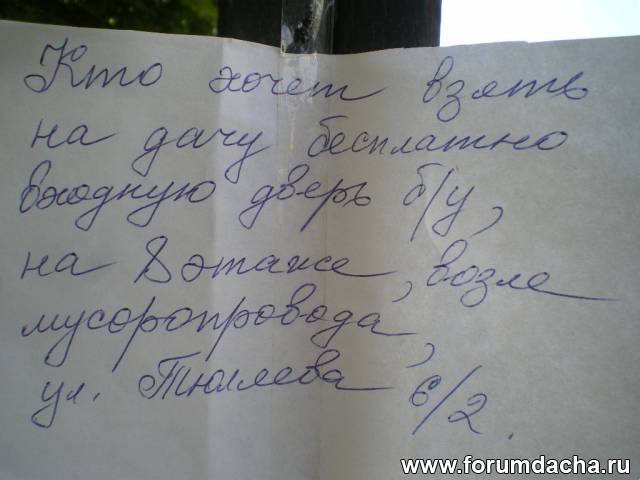 Кто хочет взять
на дачу бесплатно
входную дверь б/у,
на 8 этаже, возле
мусоропровода,
ул. Тюляева 6/2.
www.forumdacha.ru